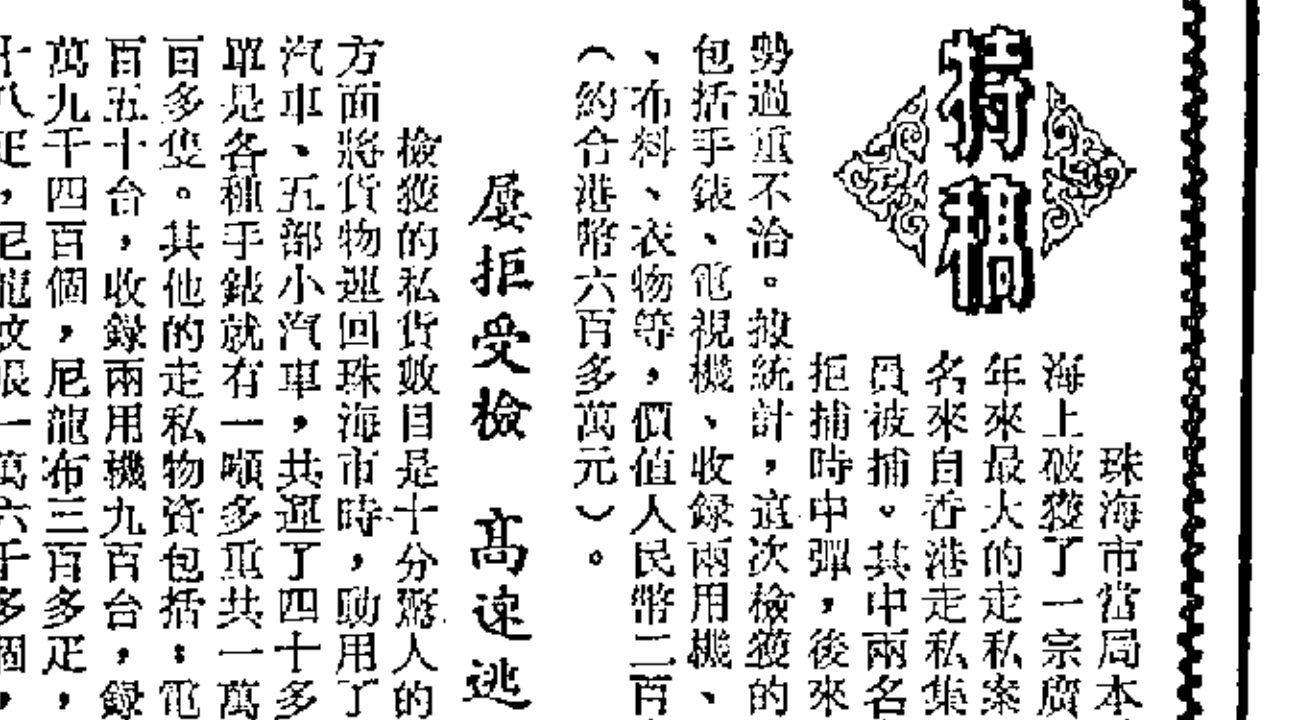 特稿
珠海市當局本
海上破獲了一宗廣
年來最大的走私案
名來自香港走私集
員被捕。其中兩名
拒捕時中彈，後來
勢過重不治。據統計，這次檢獲的
包括手錶、電視機、收録兩用機、
、布料、衣物等，價值人民幣二百
（約合港幣六百多萬元）。
屡拒受檢　高速逃
檢獲的私貨數目是十分驚人的
方面將貨物運回珠海市時，動用了
汽車、五部小汽車，共運了四十多
單是各種手錶就有一噸多重共一萬
百多隻。其他的走私物資包括：電
百五十台，收録兩用機九百台，録
萬九千四百個，尼龍布三百多疋，
十八疋，尼龍蚊帳一萬六千多個，